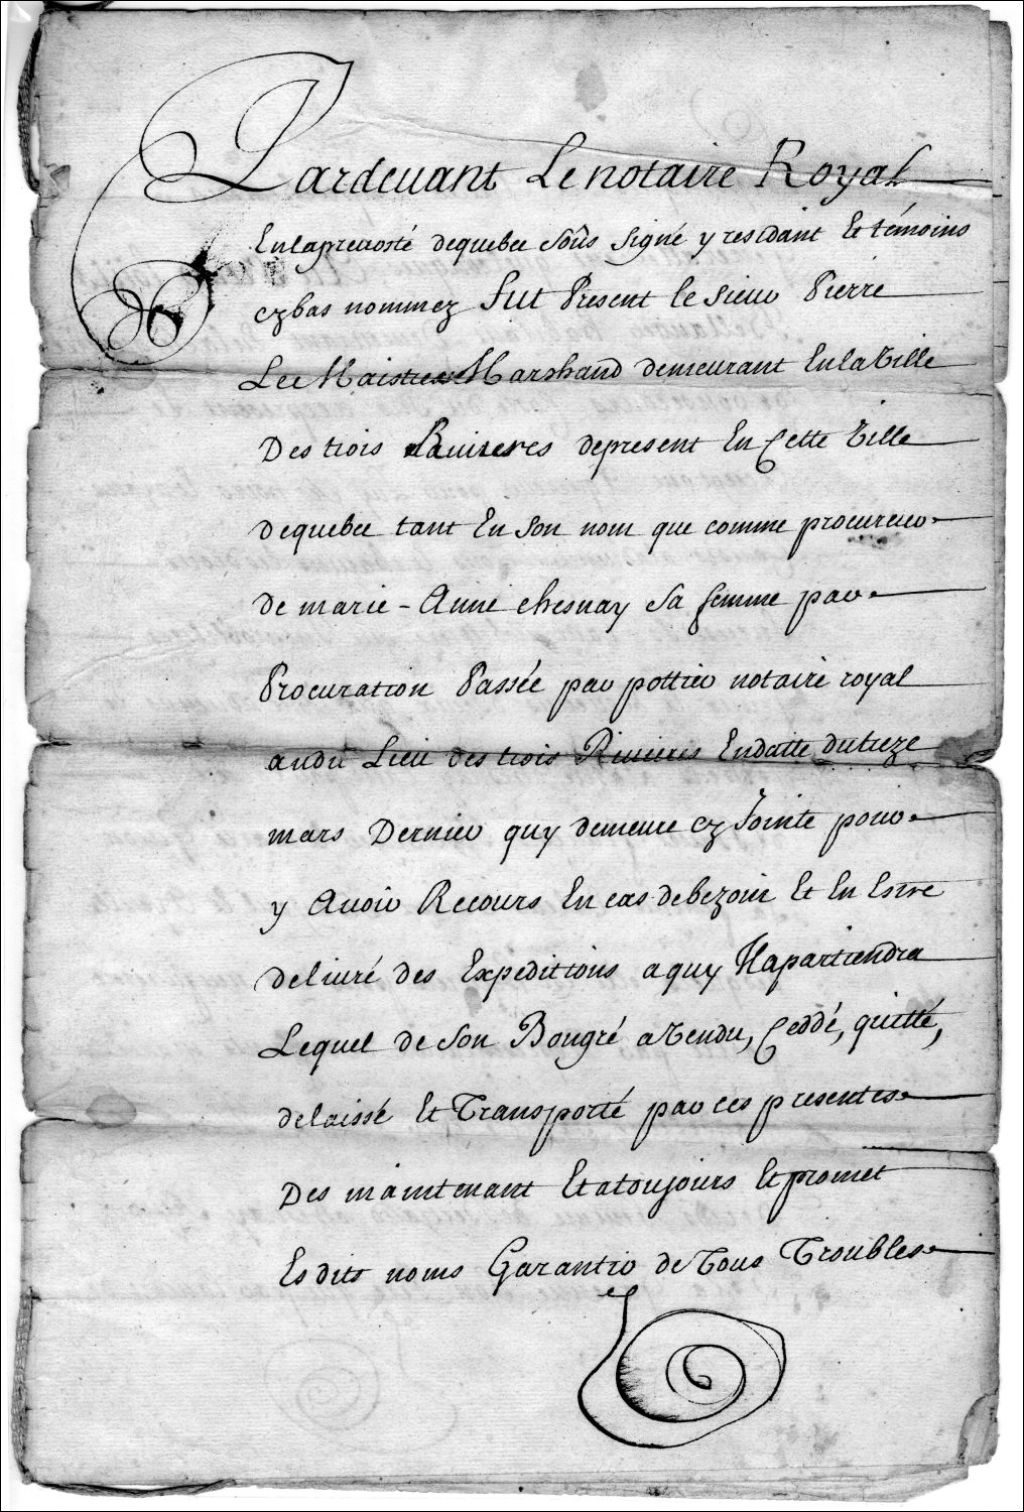 Pardeuant Le notaire Royal
En la preuosté de quebec Sous Signé y residant Et témoins
cy bas nommez Fut Present le Sieur Pierre
Le Maistre Marshand demeurant En la Ville
Des trois Riuieres de present En Cette Ville
de quebec tant En Son nom que comme procureur
de marie - Anne chesnay Sa femme par
Procuration Passée par pottier notaire royal
audit Lieu des trois Riuieres En datte du treze
mars Dernier quy demeure cy Jointe pour
y Auoir Recours En cas de bezoin Et En Estre
deliuré des Expeditions a quy Il apartiendra
Lequel de Son Bongré a Vendu, Ceddé, quitté,
delaissé Et Transporté par ces presentes
Des maintenant Et a toujours Et promet
Es dits noms Garantir de Tous Troubles